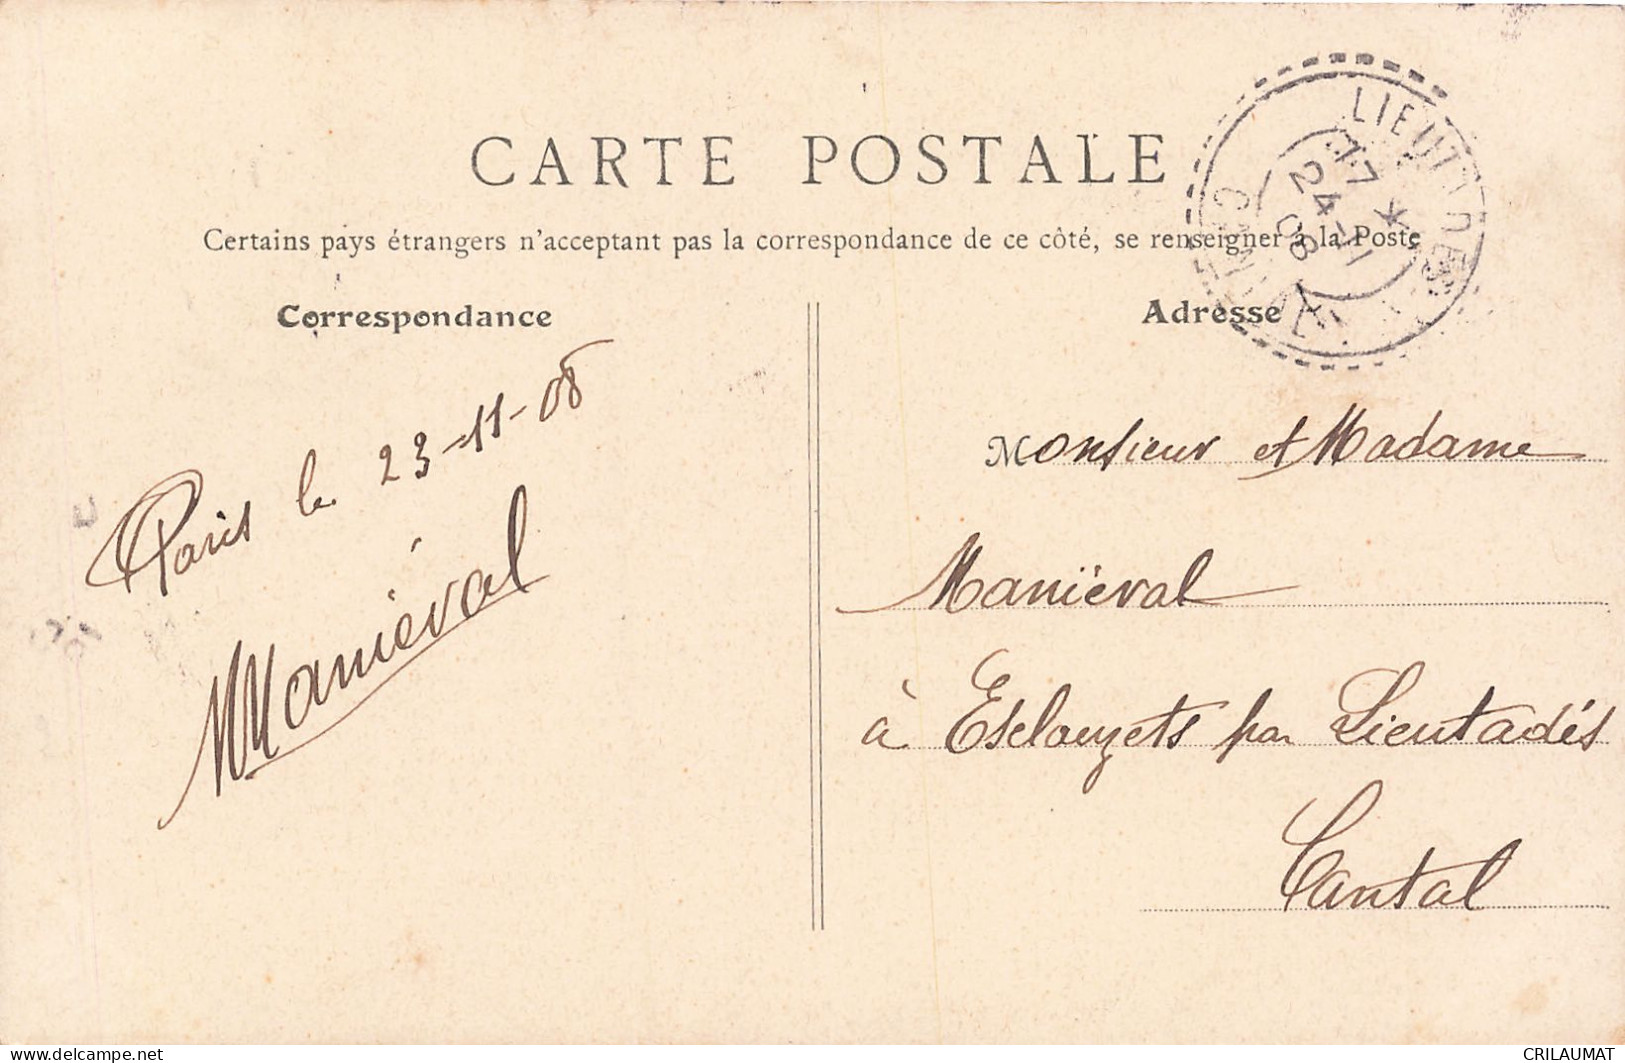 CARTE POSTALE
Certains pays étrangers n'acceptant pas la correspondance de ce côté, se renseigner à la Poste
Correspondance
Adresse
LIEUTADES
17 *
24-11
08
CANTAL
Paris le 23-11-08
Maniéval
Monsieur et Madame
Maniéval
à Esclauzets par Lieutadés
Cantal
delcampe.net
CRILAUMAT